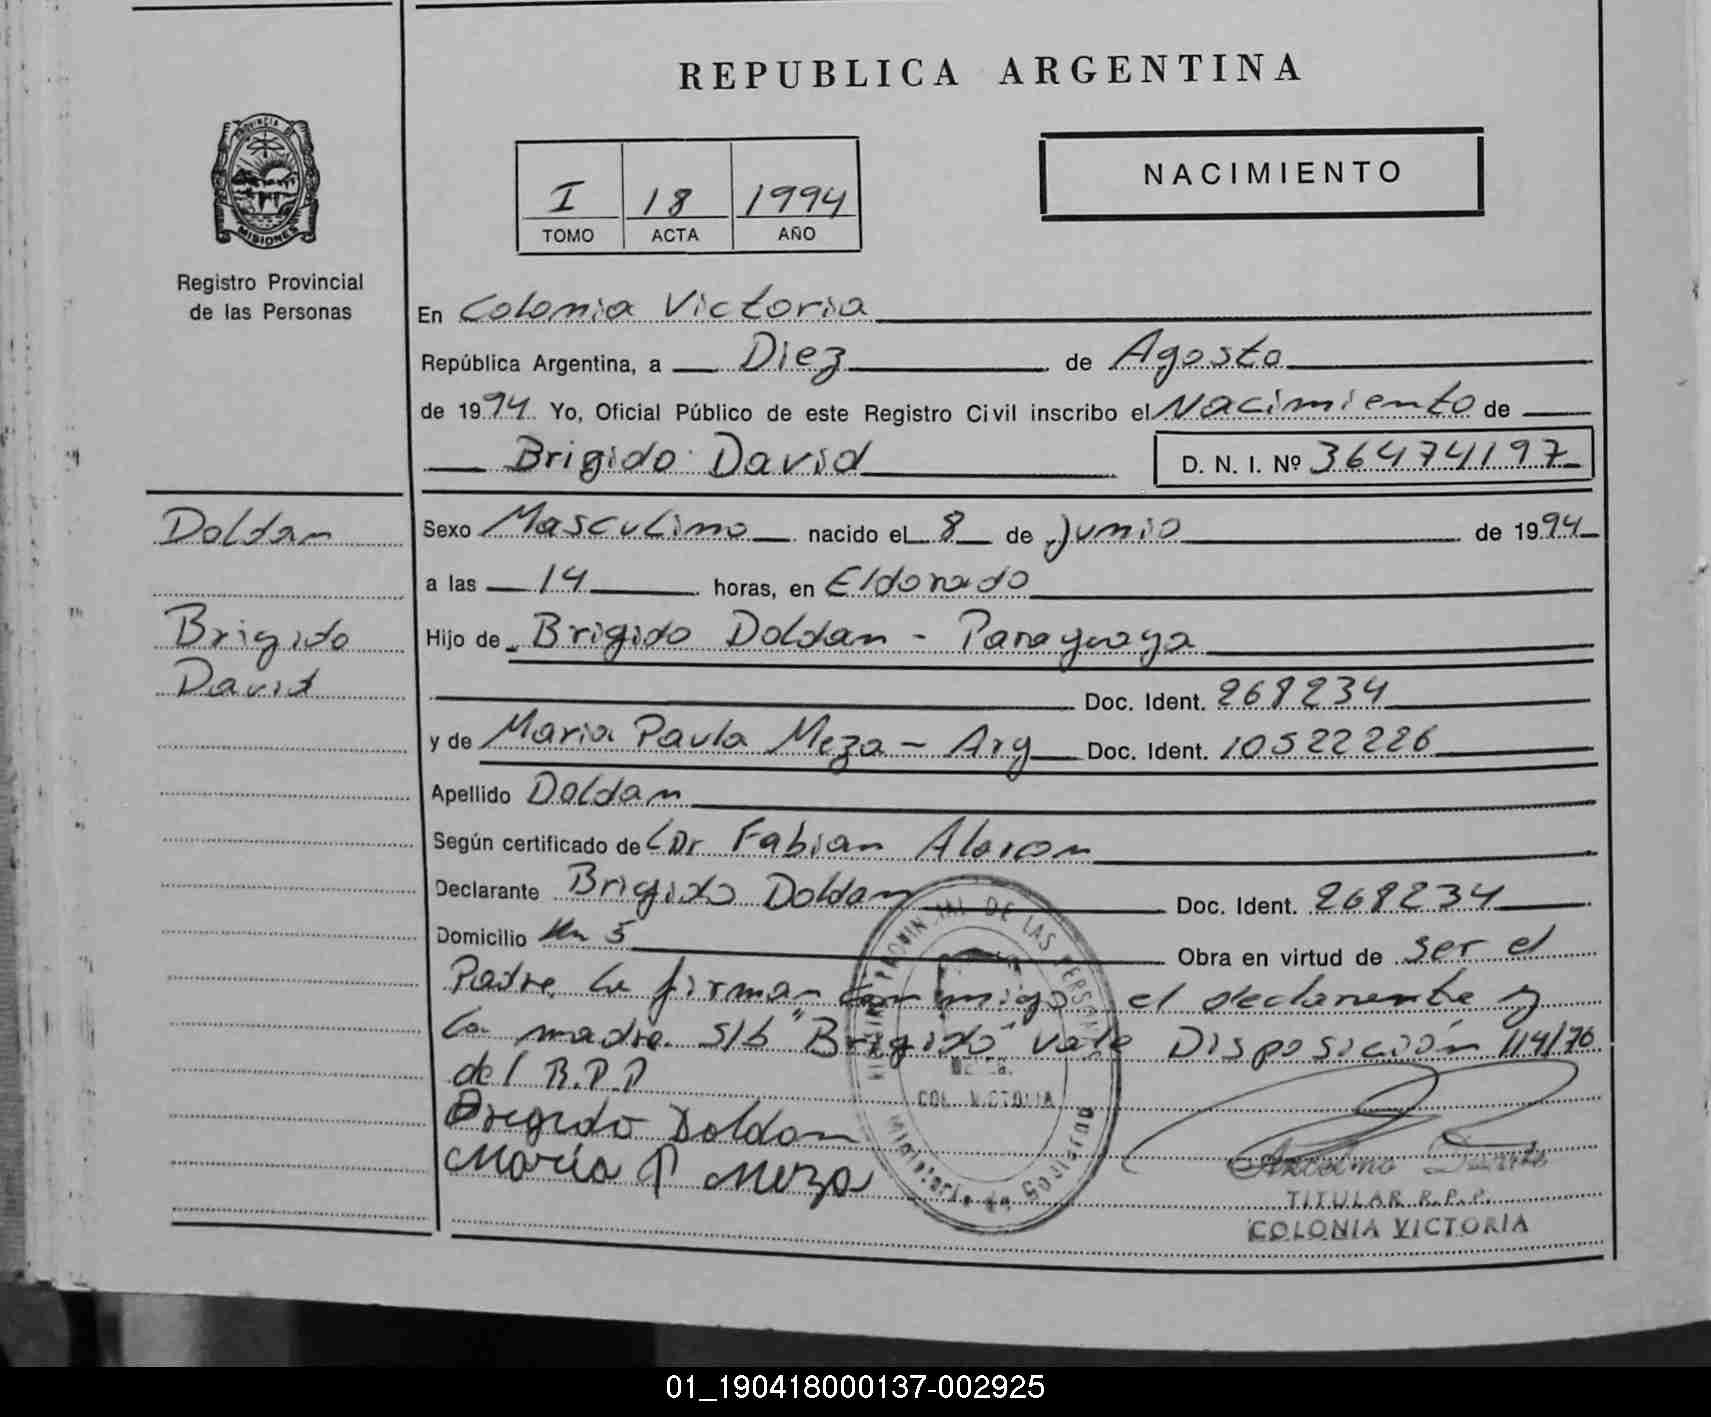 REPUBLICA ARGENTINA
PROVINCIA DE
MISIONES
Registro Provincial
de las Personas
I 18 1994
TOMO ACTA AÑO
NACIMIENTO
En Colonia Victoria
República Argentina, a Diez de Agosto
de 1994 Yo, Oficial Público de este Registro Civil inscribo el Nacimiento de
Brigido David D. N. I. Nº 36474197
Doldan
Brigido
David
Sexo Masculino nacido el 8 de Junio de 1994
a las 14 horas, en Eldorado
Hijo de Brigido Doldan - Paraguaya
Doc. Ident. 268234
y de Maria Paula Meza - Arg Doc. Ident. 10522226
Apellido Doldan
Según certificado de Dr Fabian
Declarante Brigido Doldan Doc. Ident. 268234
Domicilio Km 5 Obra en virtud de ser el
Padre la firman conmigo el declarante y
la madre s/b "Brigido" vale Disposición 114/76
del R.P.P
Brigido Doldan
María P Meza
PROVINCIAL DE LAS PERSONAS
COL. VICTORIA
Ministerio de Gobierno
TITULAR R.P.P.
COLONIA VICTORIA
01_190418000137-002925